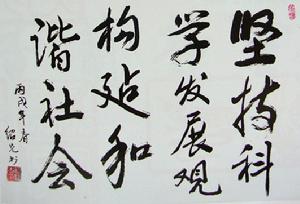 坚持科
学发展观
构建和
谐社会
丙戌年春
绍先书